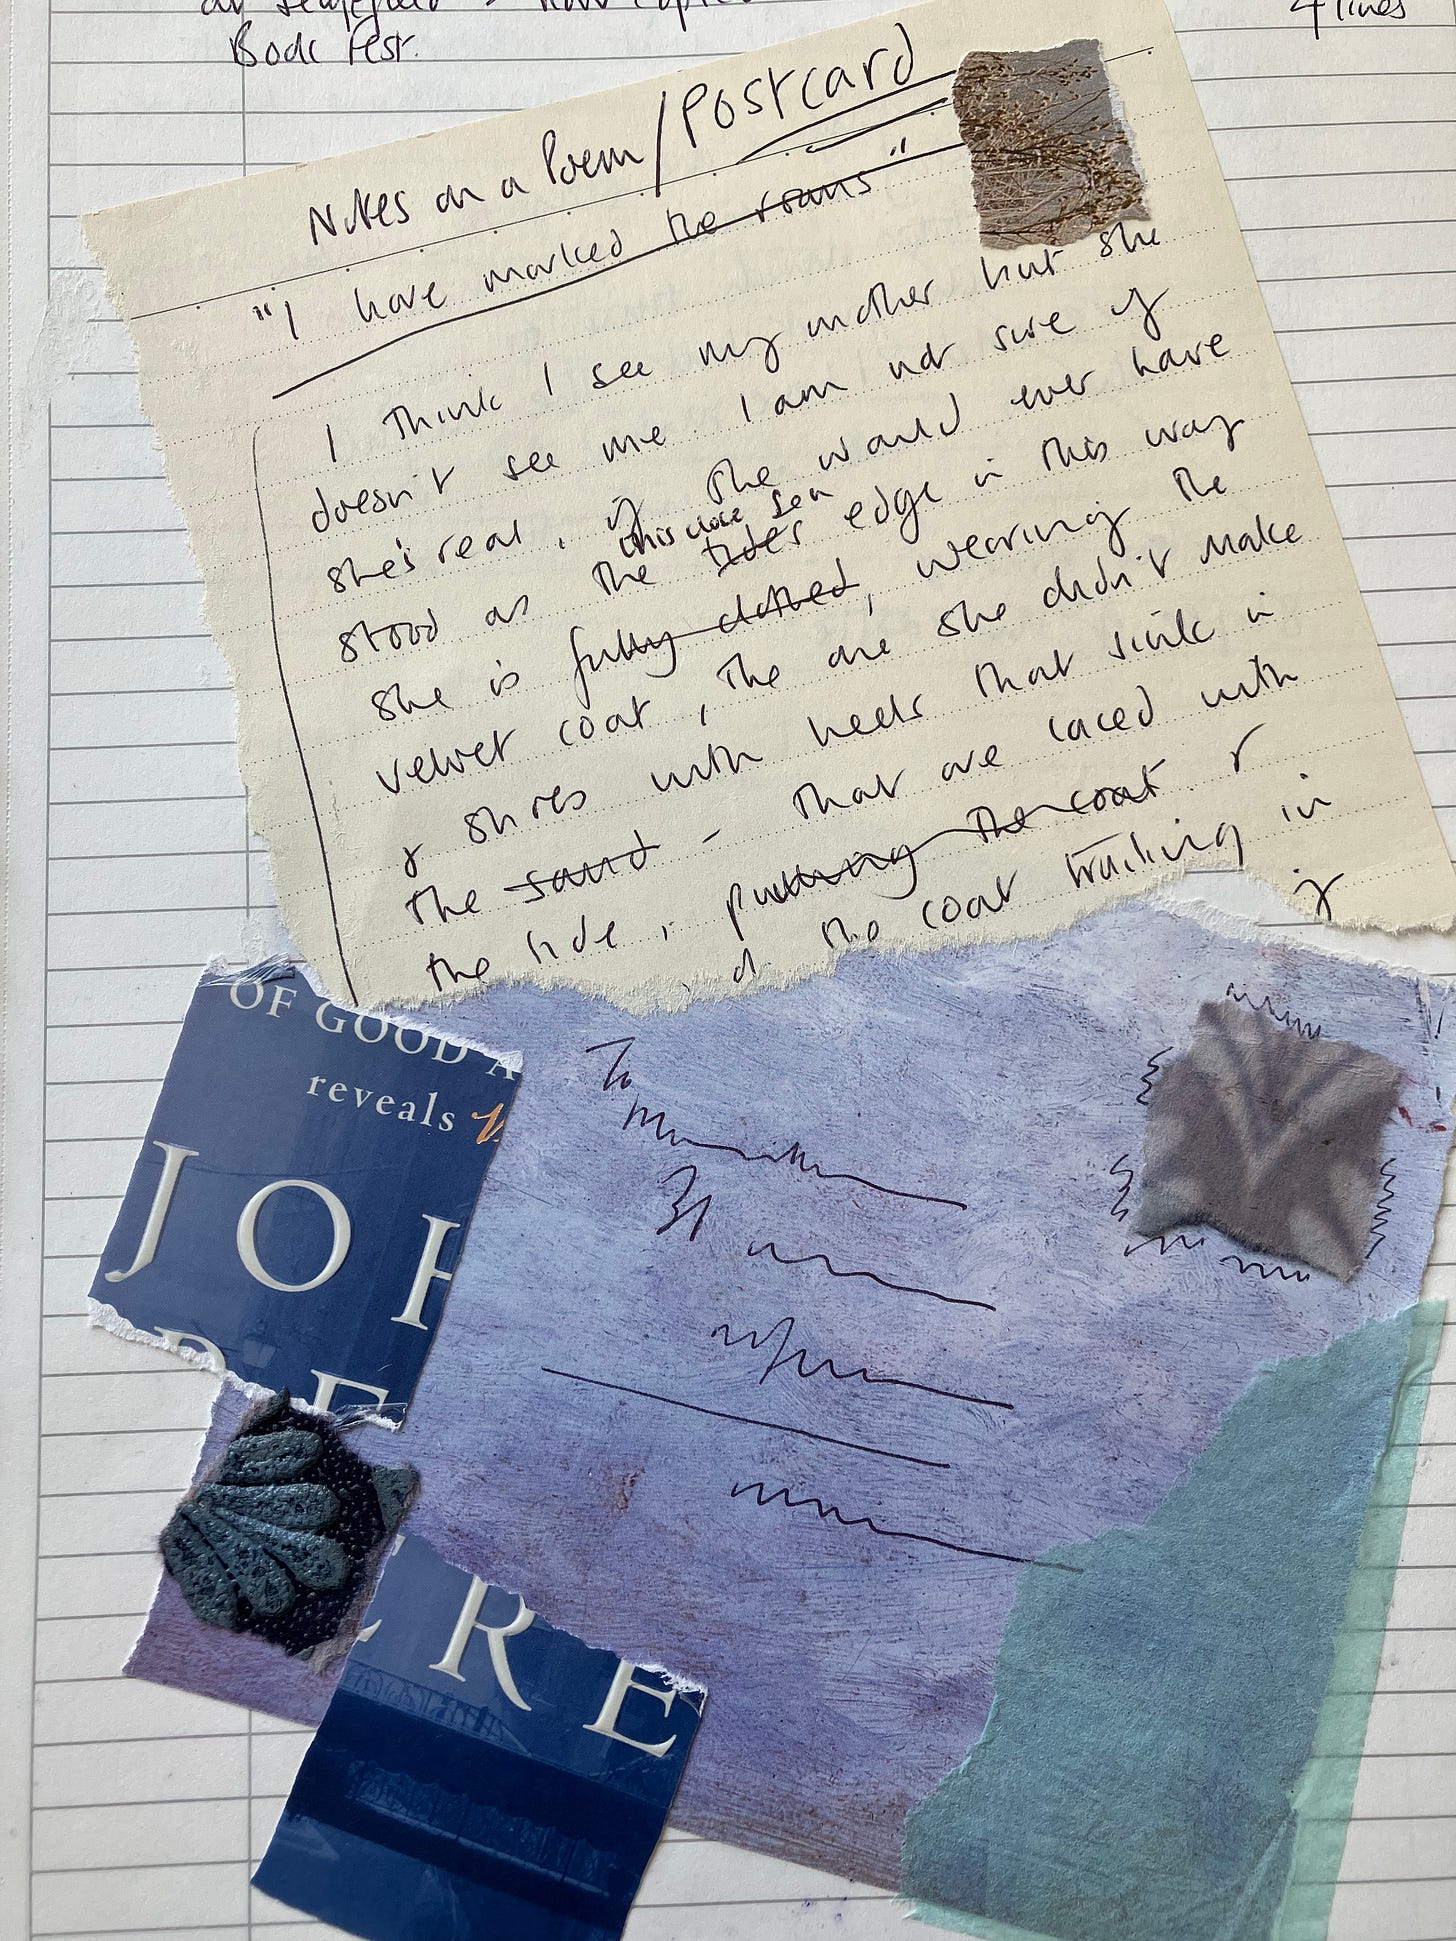 4 lines
Book Fest.
Notes on a Poem/Postcard
"I have marked the rooms"
I think I see my mother but she
doesn't see me I am not sure if
she's real, if she would ever have
this close sea
stood as the tides edge in this way
she is fully clothed, wearing the
velvet coat, the one she didn't make
& shoes with heels that sink in
the sand - that are laced with
the tide, pulling the coat &
the coat trailing in
OF GOOD A
reveals
JOH
RE
To
31
ERE